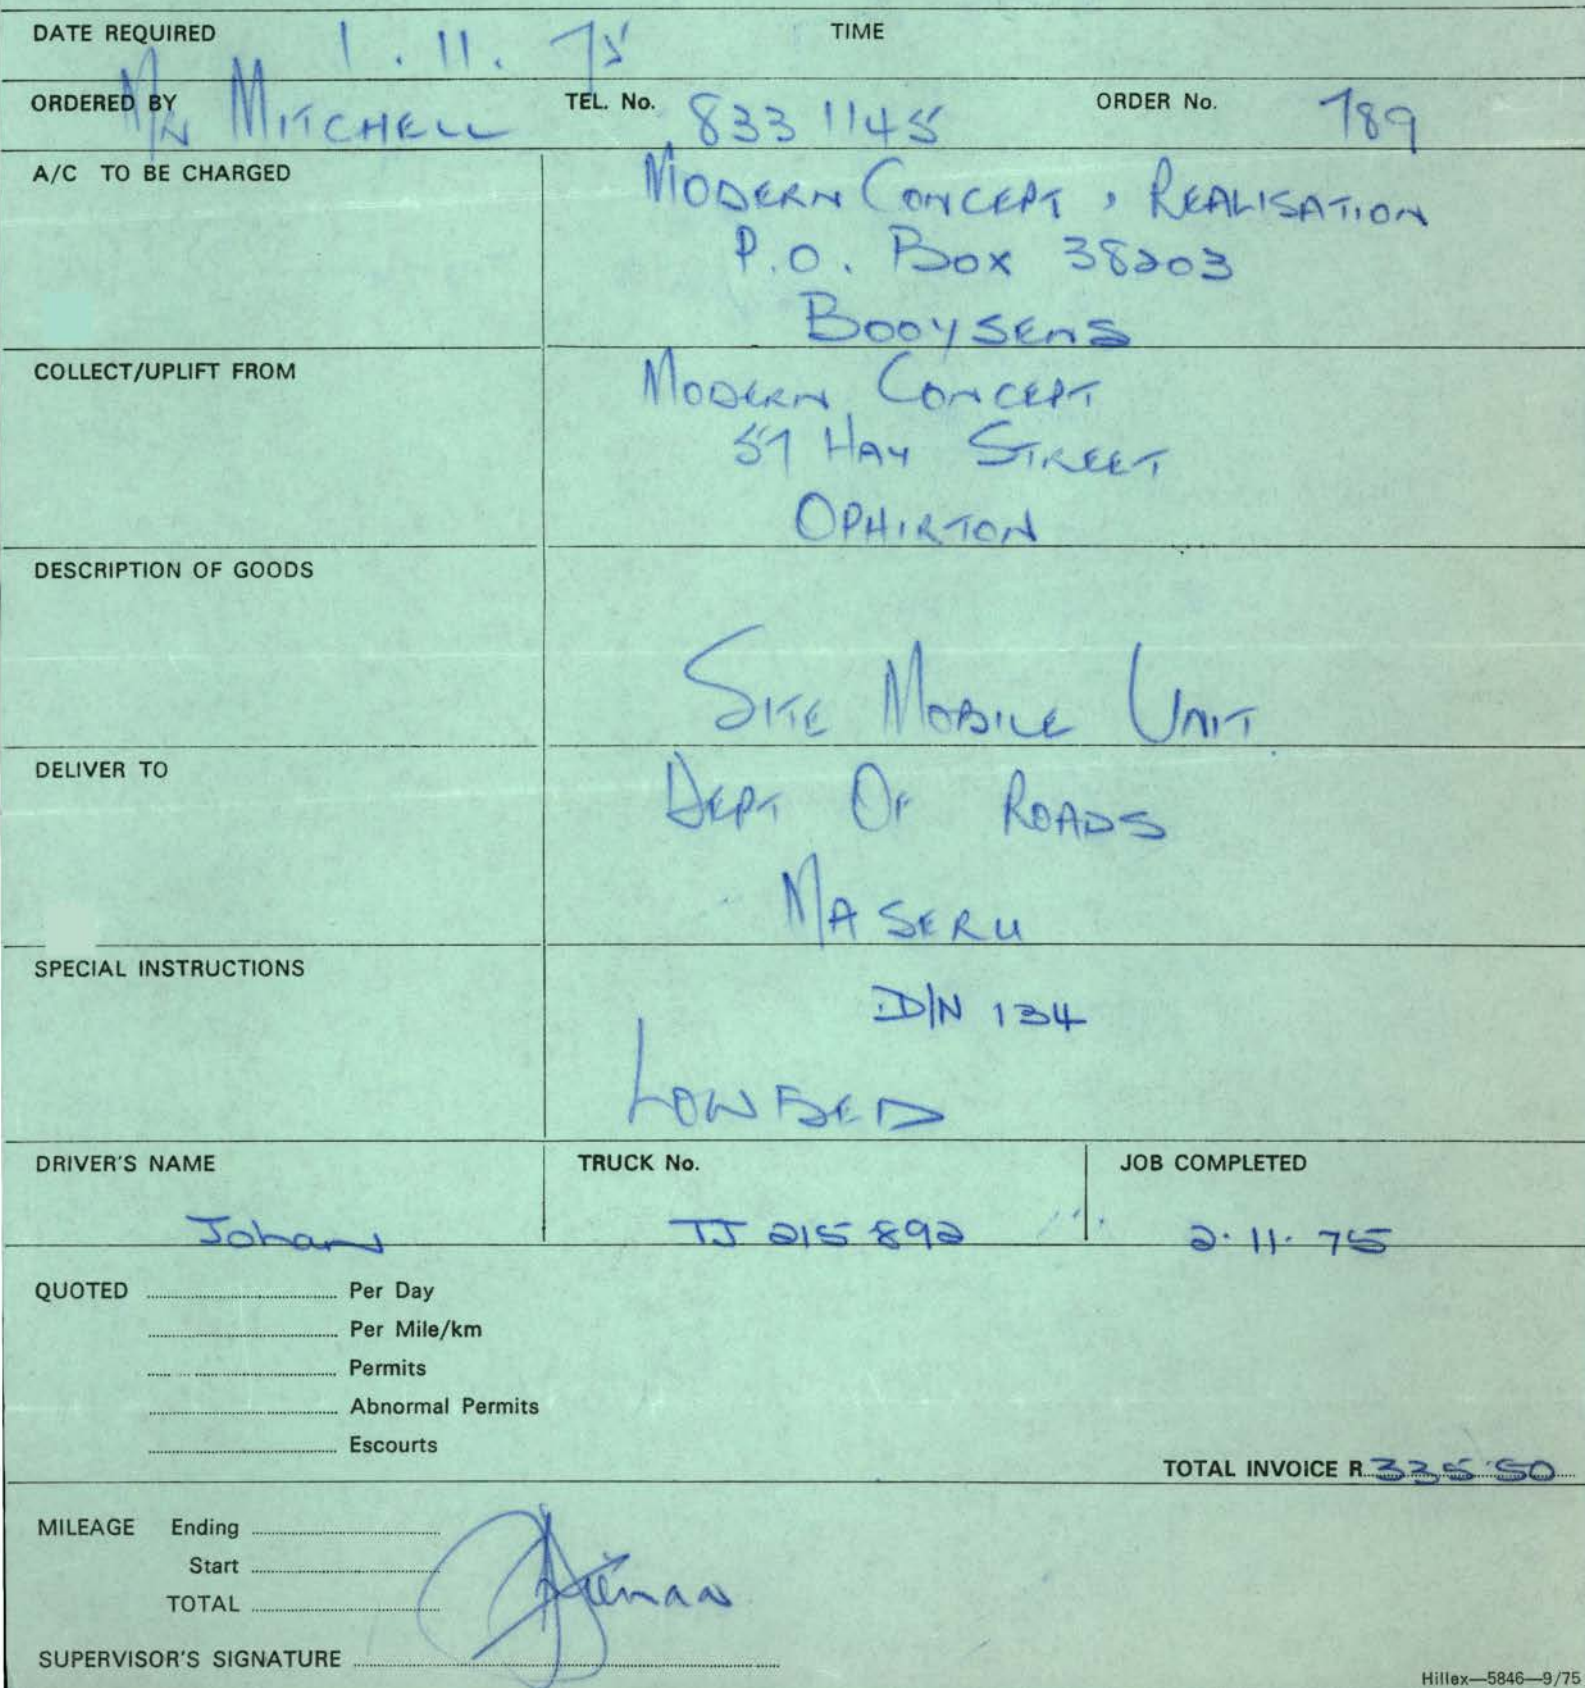 DATE REQUIRED 1.11.75 TIME
ORDERED BY Mr MITCHELL TEL. No. 833 1145 ORDER No. 789
A/C TO BE CHARGED MODERN CONCEPT, REALISATION
P.O. BOX 38203
BOOYSENS
COLLECT/UPLIFT FROM MODERN CONCEPT
57 HAY STREET
OPHIRTON
DESCRIPTION OF GOODS
SITE MOBILE UNIT
DELIVER TO DEPT OF ROADS
MASERU
SPECIAL INSTRUCTIONS
D/N 134
LOWBED
DRIVER'S NAME TRUCK No. JOB COMPLETED
Johan TJ 215 892 2.11.75
QUOTED Per Day
Per Mile/km
Permits
Abnormal Permits
Escourts
TOTAL INVOICE R 335.50
MILEAGE Ending
Start
TOTAL
SUPERVISOR'S SIGNATURE
Hillex—5846—9/75